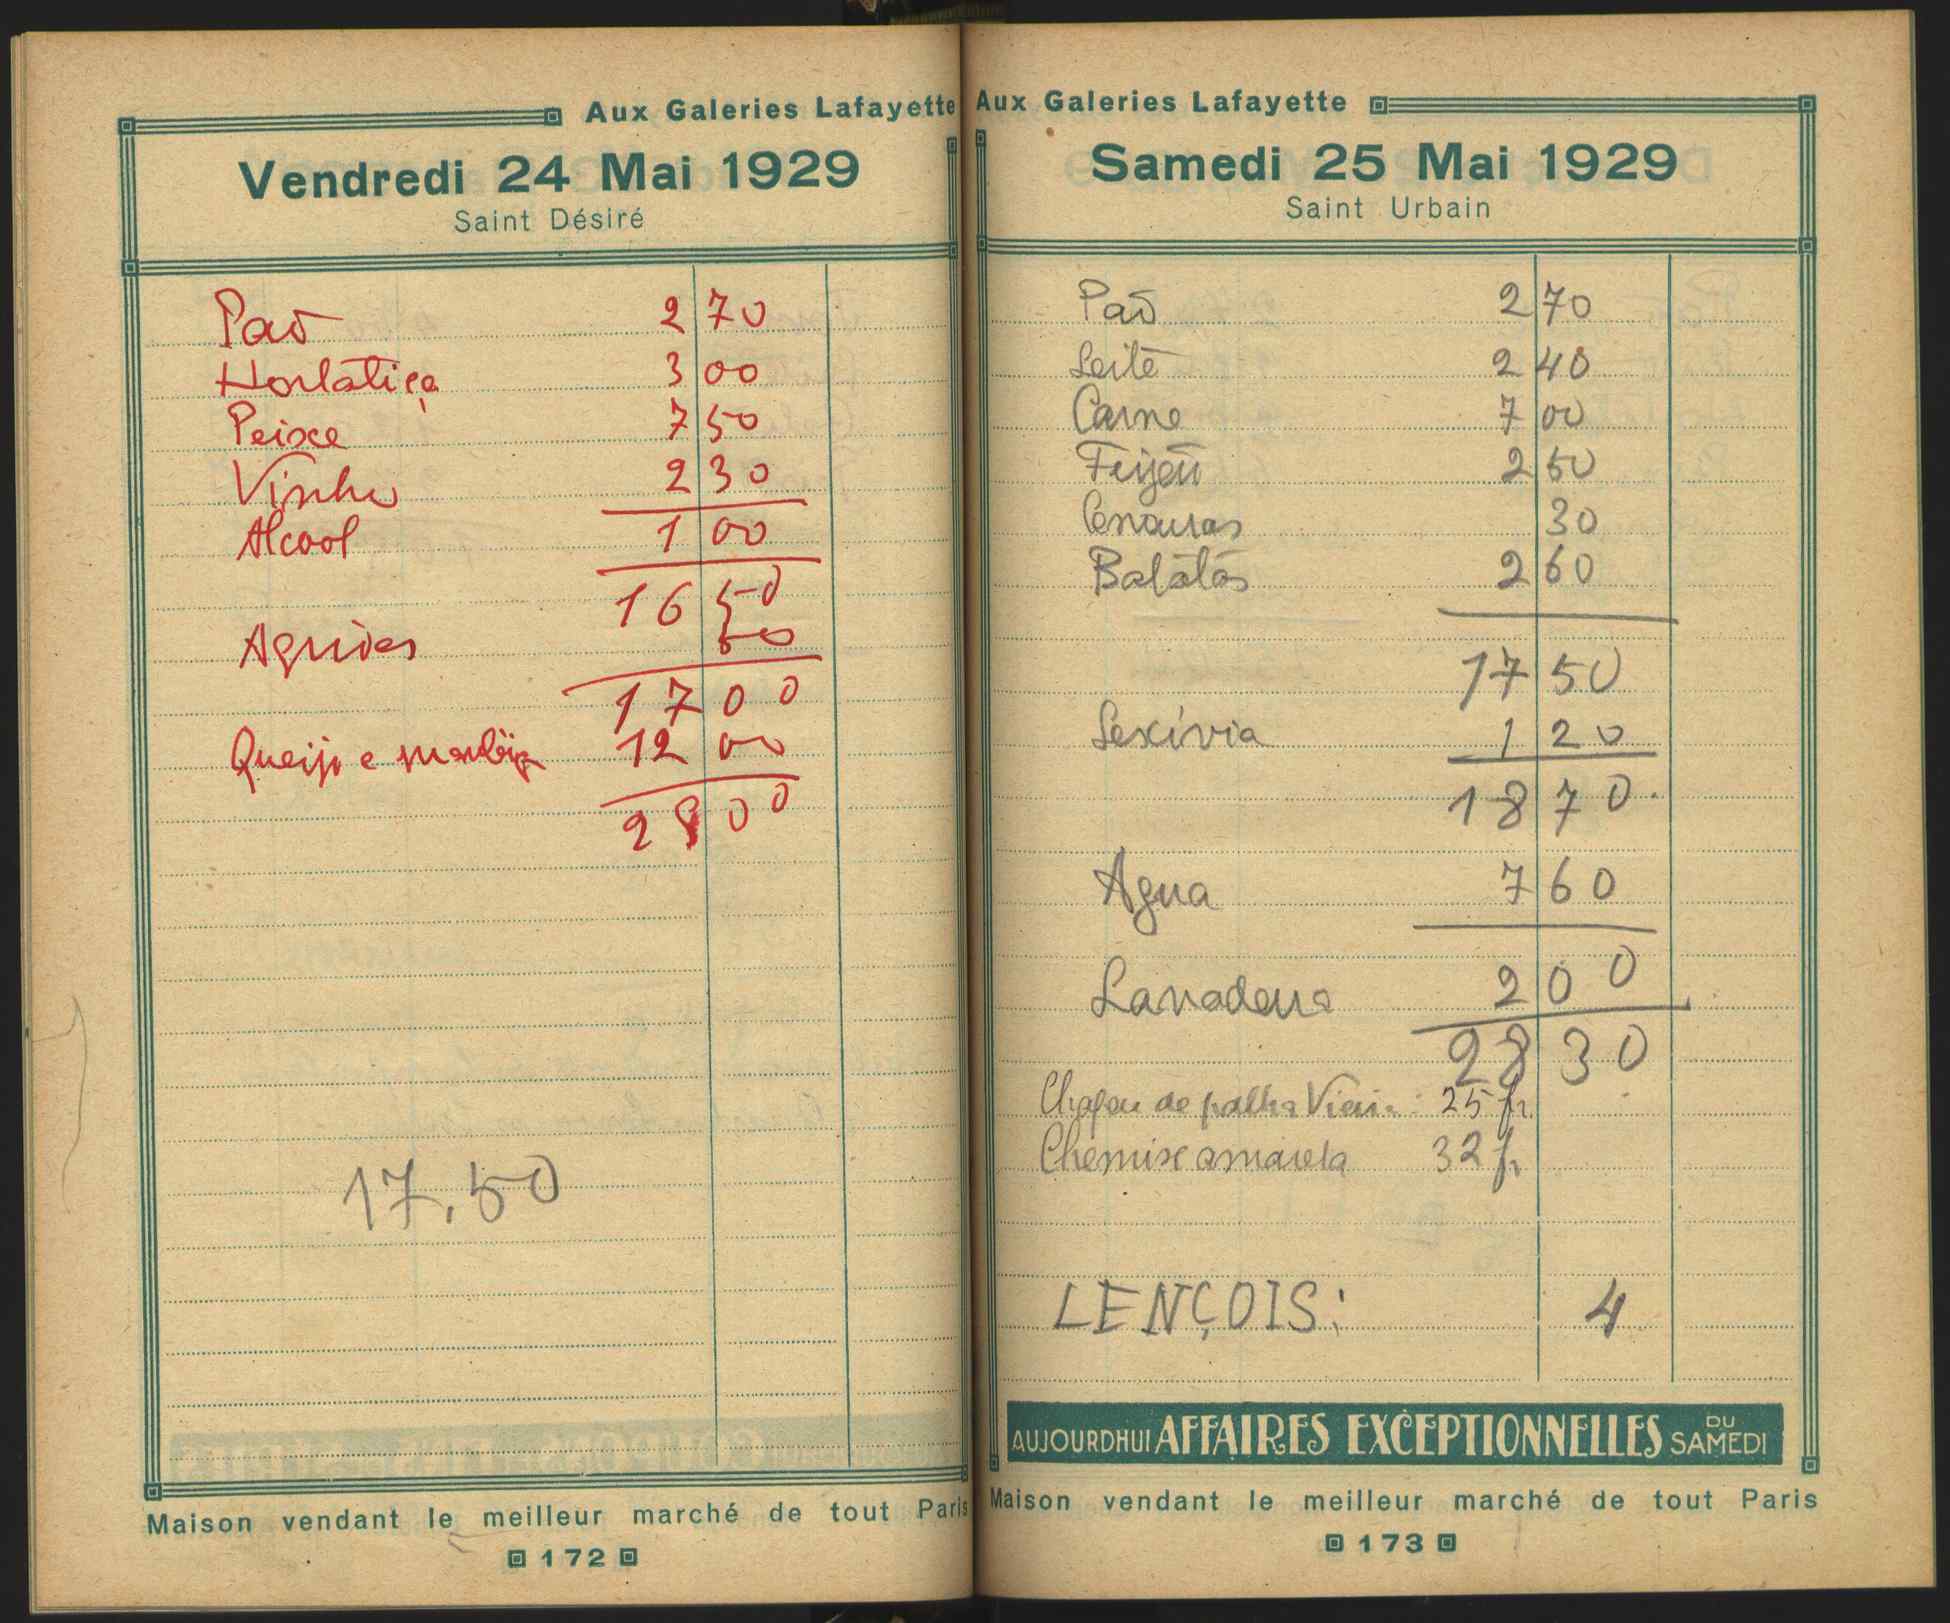 Aux Galeries Lafayette
Vendredi 24 Mai 1929
Saint Désiré
Paõ 2 70
Hortaliça 3 00
Peixe 7 50
Vinho 2 30
Alcool 1 00
16 50
Agriões 50
17 00
Queijo e manteiga 12 00
28 00
17.50
Maison vendant le meilleur marché de tout Paris
172
Aux Galeries Lafayette
Samedi 25 Mai 1929
Saint Urbain
Paõ 2 70
Leite 2 40
Carne 7 00
Feijaõ 2 50
Cenouras 30
Batatas 2 60
17 50
Lexívia 1 20
18 70.
Agua 7 60
Lavadeira 2 00
28 30
Chapeu de palha Vieira 25 fr
Chemise amarela 32 fr
LENÇOIS: 4
AUJOURDHUI AFFAIRES EXCEPTIONNELLES DU SAMEDI
Maison vendant le meilleur marché de tout Paris
173